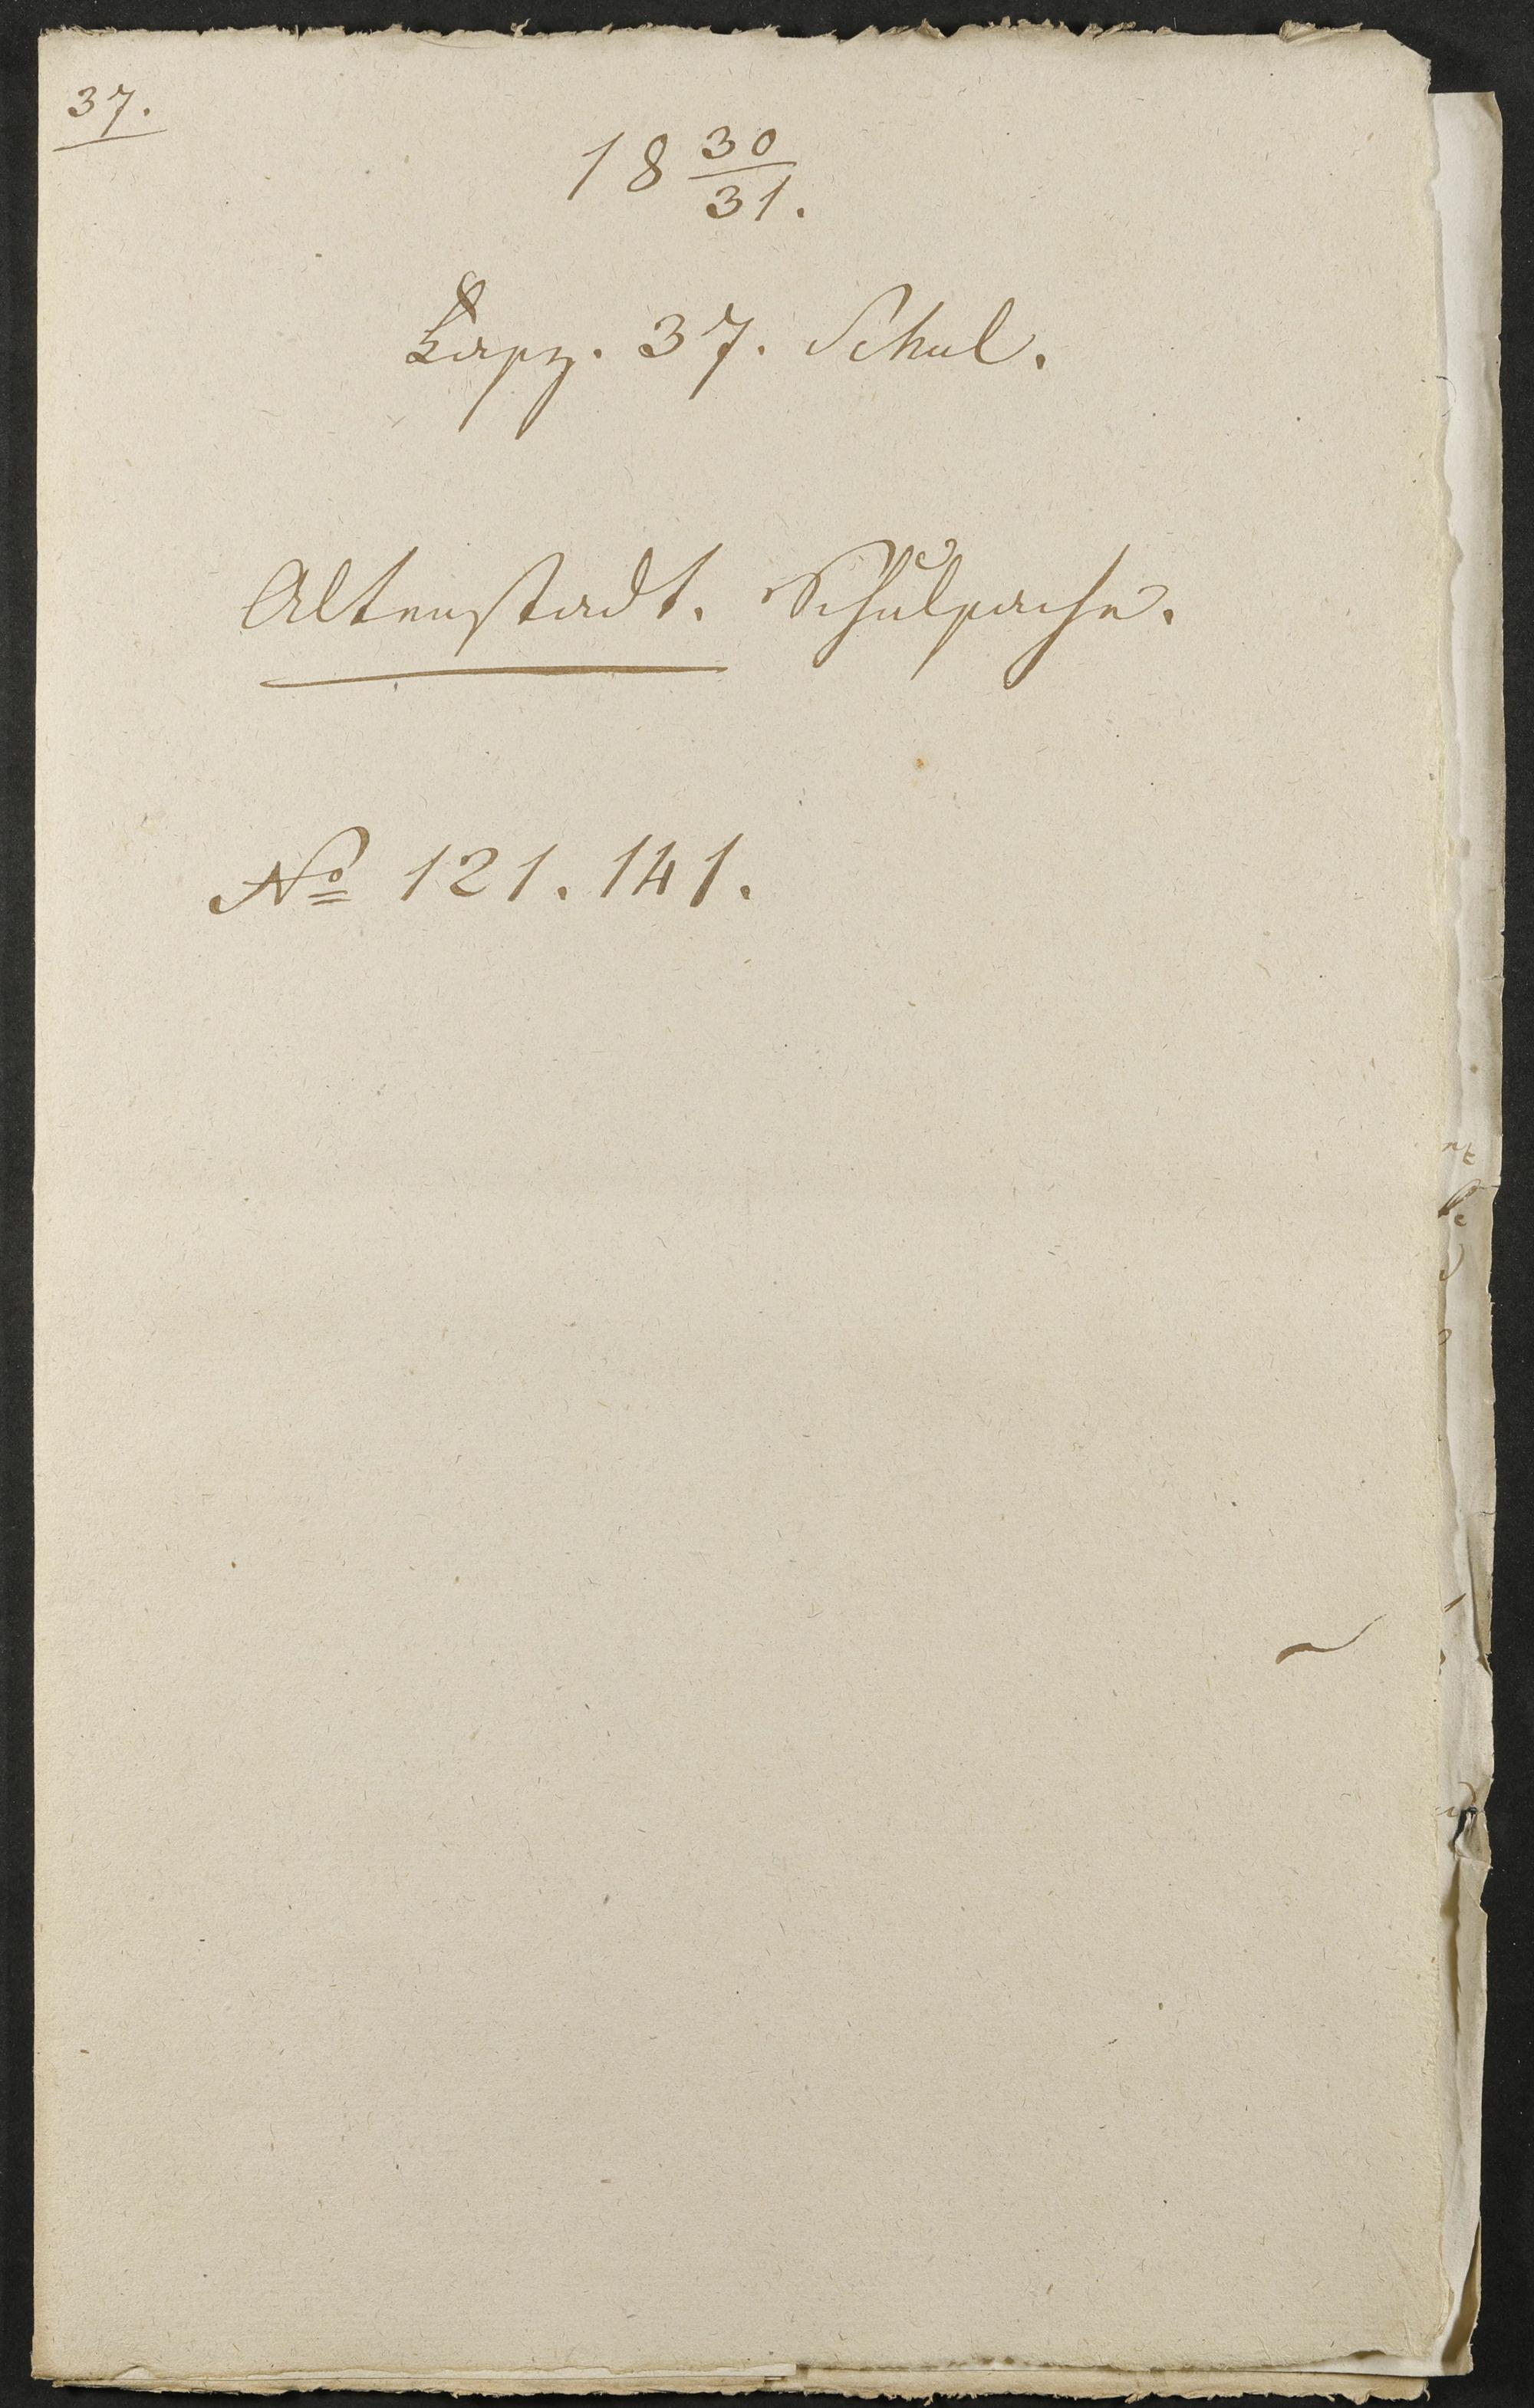 37.
18 30/31.
Fasz. 37. Schul.
Altenstadt. Schulsache.
No 121. 141.